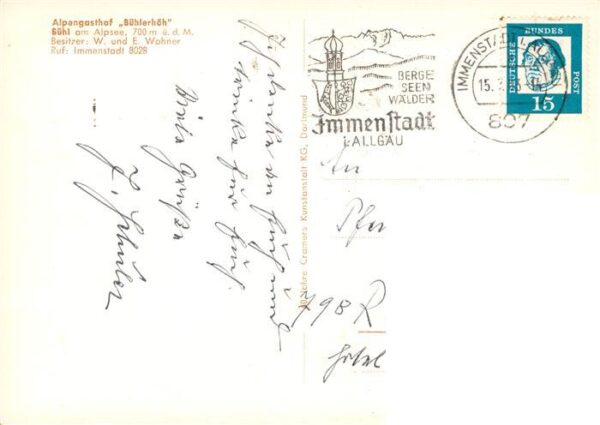 Alpengasthof „Bühlerhöh"
Bühl am Alpsee, 700 m ü. d. M.
Besitzer: W. und E. Wohner
Ruf: Immenstadt 8028
Ich denke an Euch und
trinke für Euch.
Viele Grüße
50 Jahre Cramers Kunstanstalt KG, Dortmund
BERGE
SEEN
WÄLDER
Immenstadt
i. ALLGÄU
IMMENSTADT
15.
807
DEUTSCHE BUNDESPOST
15
An
798 R
Hotel